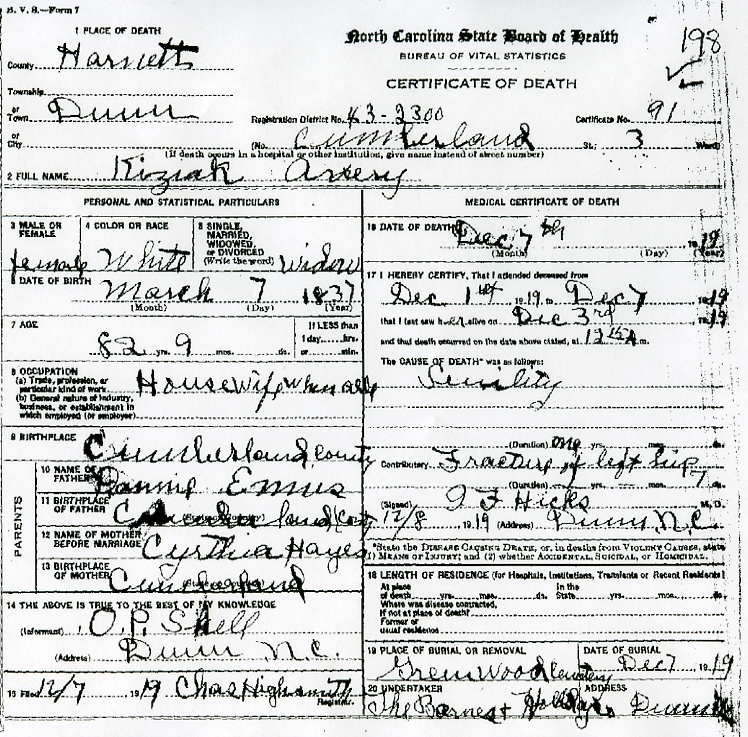 B. V. S.—Form 7
1 PLACE OF DEATH
County Harnett
Township
or Town Dunn
or City
North Carolina State Board of Health
BUREAU OF VITAL STATISTICS
CERTIFICATE OF DEATH
198
Registration District No. 43-2300 Certificate No. 91
(No. Cumberland St.: 3 Ward)
(If death occurs in a hospital or other institution, give name instead of street number)
2 FULL NAME Kiziah Avery
PERSONAL AND STATISTICAL PARTICULARS
3 MALE OR FEMALE female
4 COLOR OR RACE White
5 SINGLE, MARRIED, WIDOWED, or DIVORCED (Write the word) Widow
6 DATE OF BIRTH March 7 1837
(Month) (Day) (Year)
7 AGE 82 yrs. 9 mos. ds.
If LESS than 1 day, hrs. or min.
8 OCCUPATION
(a) Trade, profession, or particular kind of work Housewife when able
(b) General nature of industry, business, or establishment in which employed (or employer)
9 BIRTHPLACE Cumberland County
PARENTS
10 NAME OF FATHER Ennis
11 BIRTHPLACE OF FATHER Cumberland Co
12 NAME OF MOTHER BEFORE MARRIAGE Cynthia Hayes
13 BIRTHPLACE OF MOTHER Cumberland
14 THE ABOVE IS TRUE TO THE BEST OF MY KNOWLEDGE
(Informant) O. P. Shell
(Address) Dunn N.C.
15 Filed 12/7 1919 Chas Highsmith
Registrar.
MEDICAL CERTIFICATE OF DEATH
16 DATE OF DEATH Dec 7th 1919
(Month) (Day) (Year)
17 I HEREBY CERTIFY, That I attended deceased from
Dec 1st 1919 to Dec 7 1919
that I last saw her alive on Dec 3rd 1919
and that death occurred on the date above stated, at 12 m.
The CAUSE OF DEATH* was as follows:
Senility
(Duration) one yrs. mos. ds.
Contributory Fracture of left hip
(Duration) yrs. mos. 7 ds.
(Signed) I F Hicks M. D.
12/8 1919 (Address) Dunn, N.C.
*State the DISEASE CAUSING DEATH, or, in deaths from VIOLENT CAUSES, state
1) MEANS OF INJURY; and (2) whether ACCIDENTAL, SUICIDAL, or HOMICIDAL.
18 LENGTH OF RESIDENCE (for Hospitals, Institutions, Transients or Recent Residents)
At place of death yrs. mos. ds. In the State yrs. mos. ds.
Where was disease contracted, if not at place of death?
Former or usual residence
19 PLACE OF BURIAL OR REMOVAL Greenwood Cemetery
DATE OF BURIAL Dec 7 1919
20 UNDERTAKER The Barnes & Holliday Co
ADDRESS Dunn